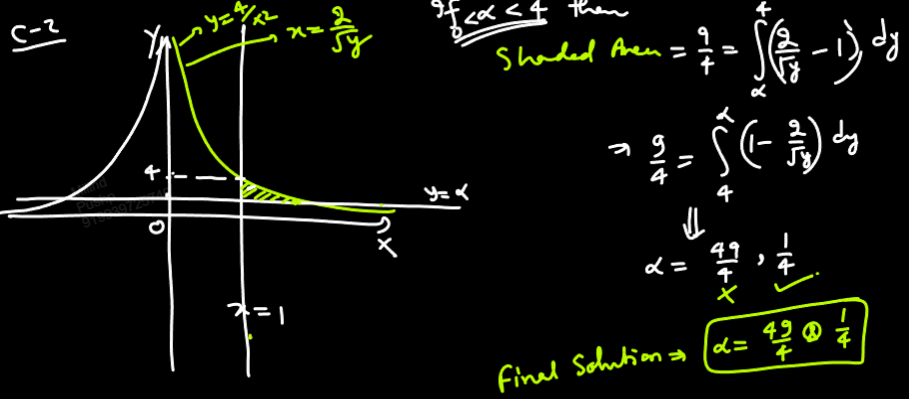 C-2
Y
y = 4/x²
x = 2/√y
If 0 < α < 4 then
Shaded Area = 9/4 = ∫_α^4 (2/√y - 1) dy
⇒ 9/4 = ∫_4^α (1 - 2/√y) dy
⇓
α = 49/4 , 1/4
× ✓
4
y = α
O
X
x = 1
Final Solution ⇒ α = 49/4 & 1/4